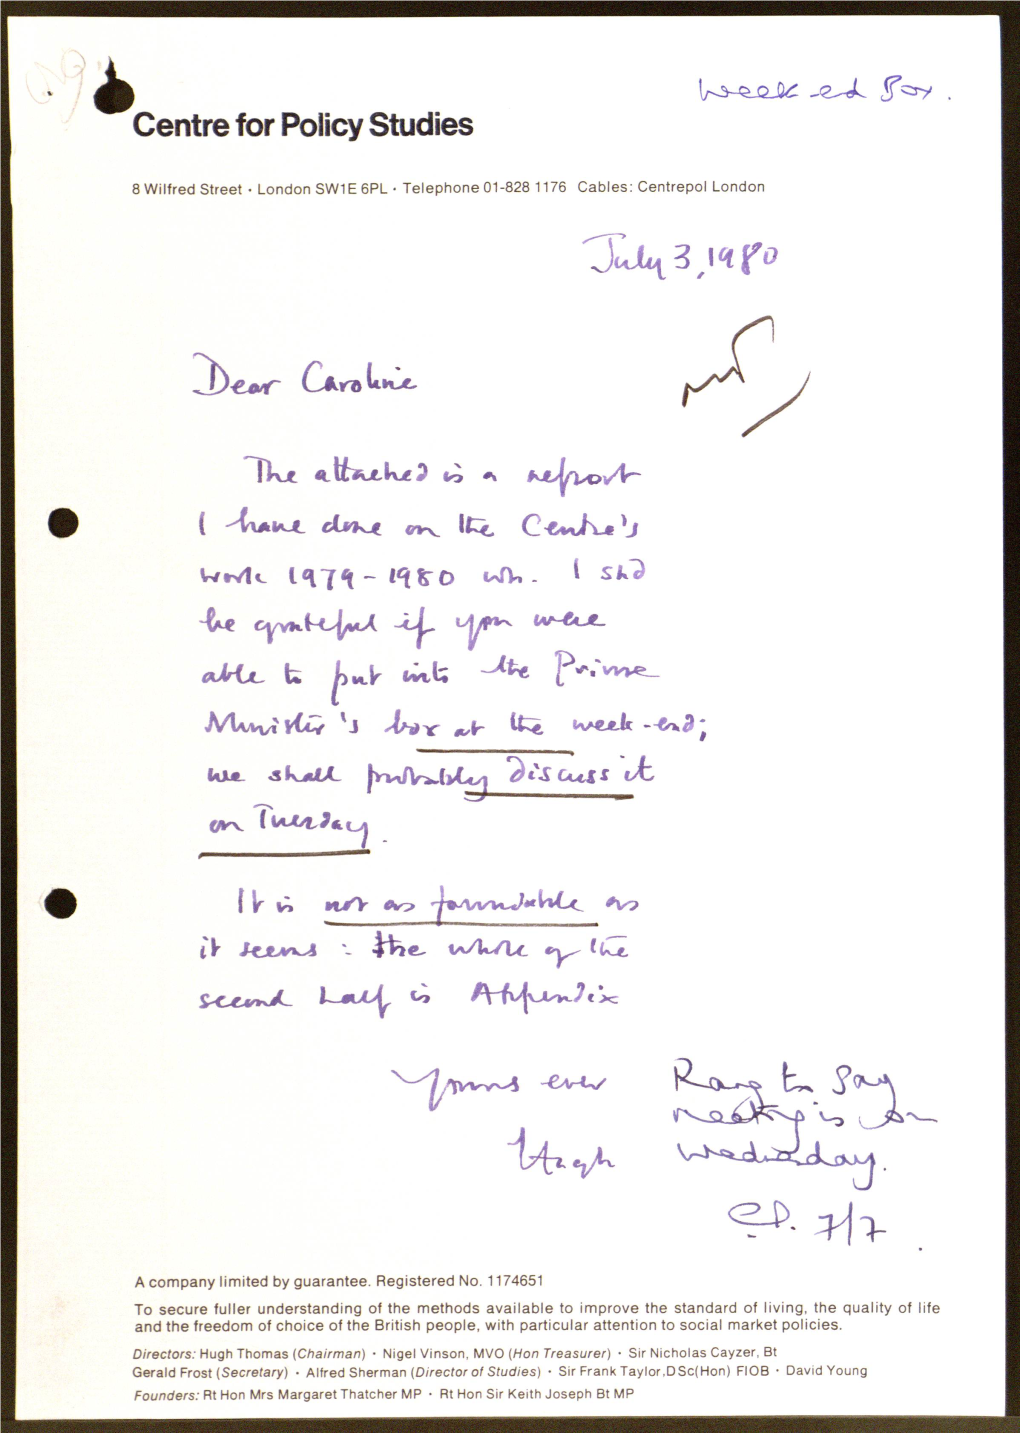 Week-ed Box.
Centre for Policy Studies
8 Wilfred Street · London SW1E 6PL · Telephone 01-828 1176 Cables: Centrepol London
July 3, 1980
Dear Caroline
The attached is a report
I have done on the Centre's
work 1979-1980 wh. I shd
be grateful if you were
able to put into the Prime
Minister's box at the week-end;
we shall probably discuss it
on Tuesday.
It is not as formidable as
it seems: the whole of the
second half is Appendix
Yours ever
Hugh
Rang to say
meeting is on
Wednesday.
C.P. 7/7.
A company limited by guarantee. Registered No. 1174651
To secure fuller understanding of the methods available to improve the standard of living, the quality of life
and the freedom of choice of the British people, with particular attention to social market policies.
Directors: Hugh Thomas (Chairman) · Nigel Vinson, MVO (Hon Treasurer) · Sir Nicholas Cayzer, Bt
Gerald Frost (Secretary) · Alfred Sherman (Director of Studies) · Sir Frank Taylor,DSc(Hon) FIOB · David Young
Founders: Rt Hon Mrs Margaret Thatcher MP · Rt Hon Sir Keith Joseph Bt MP